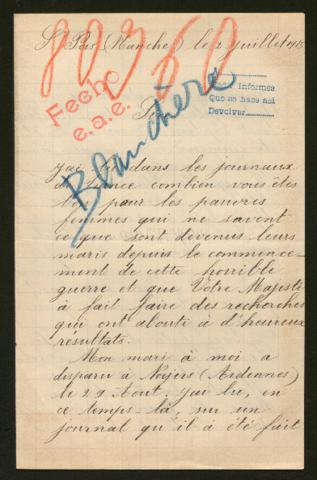 80360
St Pois (Manche) le 2 juillet 1915
Fecho
e. a. e.
Blanchère
Informes
Que se hace aci
Devolver
J'ai lu dans les journaux
de France combien vous êtes
bon pour les pauvres
femmes qui ne savent
ce que sont devenus leurs
maris depuis le commence-
ment de cette horrible
guerre et que Votre Majesté
à fait faire des recherches
qui ont abouti à d'heureux
résultats.
Mon mari à moi a
disparu à (Ardennes)
le 29 Aout. J'ai lu, en
ce temps-là, sur un
journal qu'il à été fait